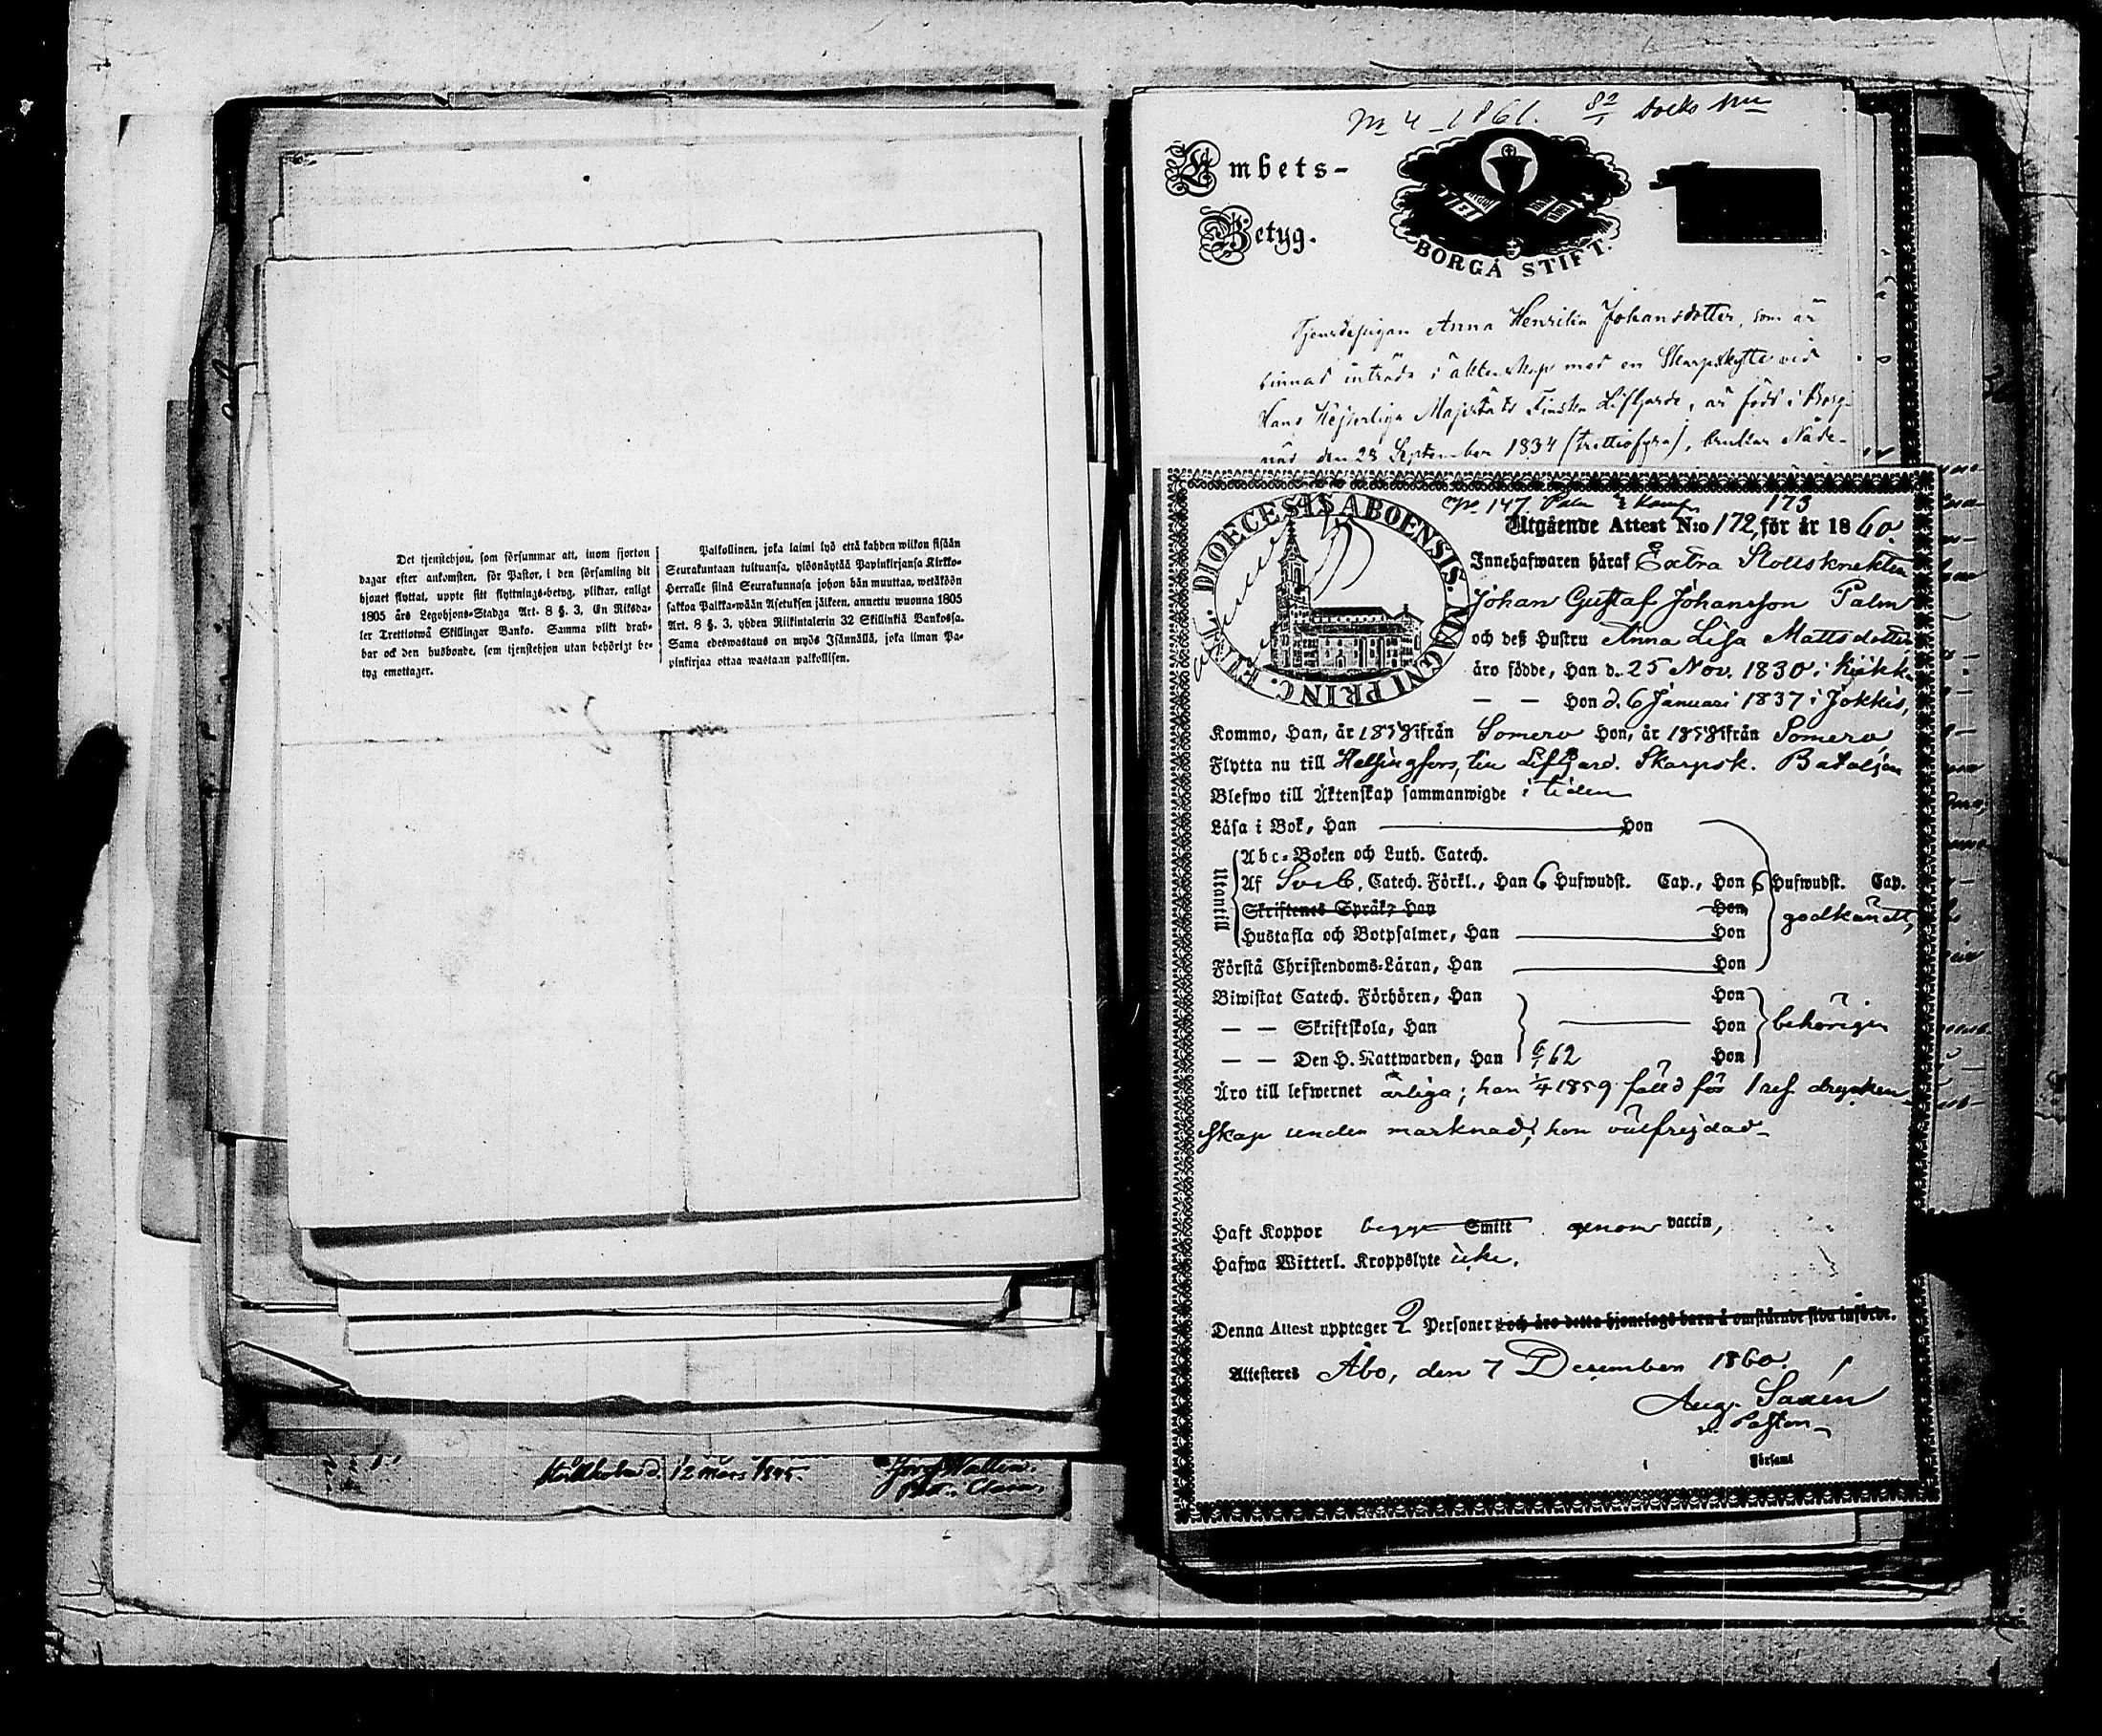 Det tjenstehjon, som försummar att, inom fjorton
dagar efter ankomsten, för Pastor, i den församling dit
hjonet flyttat, uppte sitt flyttnings-betyg, pliktar, enligt
1805 års Legohjons-Stadga Art. 8 §. 3, En Riksda-
ler Trettiotwå Skillingar Banko. Samma plikt drab-
bar ock den husbonde, som tjenstehjon utan behörigt be-
tyg emottager.
Palkollinen, joka laimi lyö että kahden wiikon sisään
Seurakuntaan tultuansa, ylösnäyttää Papinkirjansa Kirkko-
Herralle siinä Seurakunnasa johon hän muuttaa, wetäköön
sakkoa Palkka-wään Asetuksen jälkeen, annettu wuonna 1805
Art. 8 §. 3, yhden Riikintalerin 32 Skillinkiä Bankossa.
Sama edeswastaus on myös Isännällä, joka ilman Pa-
pinkirjaa ottaa wastaan palkollisen.
12 Mars 1845.
M 4 1861.
Embets-
Betyg.
BORGÅ STIFT
Tjenstepigan Anna Henrika Johansdotter, som är
sinnad inträda i äktenskap med en Skarpskytte vid
Hans Kejserliga Majestäts Finska Lifgarde, är född i Borg-
näs den 28 September 1834 (trettiofyra), brukar Nåde-
DIOECESIS ABOENSIS. MAGNI PRINC. FINL.
No 147. Palm 173
Utgående Attest N:o 172, för år 1860.
Innehafwaren häraf Extra Slottsknekten
Johan Gustaf Johansson Palm
och deß Hustru Anna Lisa Mattsdotter
äro födde, Han d. 25 Nov. 1830 i
— — Hon d. 6 Januari 1837 i Jokkis,
Kommo, Han, år 1858 ifrån Somero Hon, år 1858 ifrån Somero
Flytta nu till Helsingfors, till Lifgard. Skarpsk. Bataljon
Blefwo till Äktenskap sammanwigde i tiden
Läsa i Bok, Han Hon
Abc-Boken och Luth. Catech.
Utantill
Af Sveb. Catech. Förkl., Han 6 Hufwudst. Cap., Hon 6 Hufwudst. Cap.
Skriftenes Språk, Han Hon
godkändt,
Hustafla och Botpsalmer, Han Hon
Förstå Christendoms-Läran, Han Hon
Biwistat Catech. Förhören, Han Hon
— — Skriftskola, Han Hon behörigen
— — Den H. Nattwarden, Han Hon
Äro till lefwernet ärliga; han 1/4 1859 fälld för 1 res. drycken-
skap under marknad; hon välfrejdad
Haft Koppor begge Smitt genom vaccin,
Hafwa Witterl. Kroppslyte icke.
Denna Attest upptager 2 Personer och äro detta hjonelags barn å omstående sida införde.
Attesteres Åbo, den 7 December 1860.
Aug. Saxén
v. Pastor
Församl